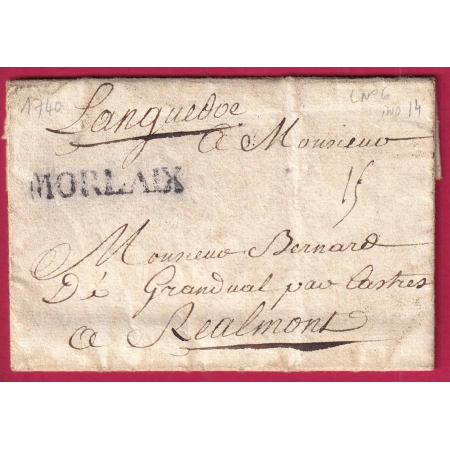 1740
Languedoc
L N° 6
ind 14
a Monsieur
MORLAIX
15
Monsieur Bernard
De Grandval par Castres
a Realmont